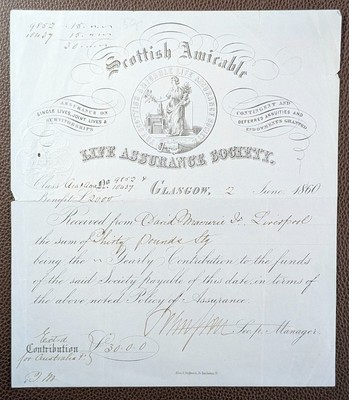 9852 - 15 " - " -
10437 - 15 " - " -
30 - " - " -
Scottish Amicable
SCOTTISH AMICABLE LIFE ASSURANCE SOCIETY
ASSURANCE ON
SINGLE LIVES, JOINT LIVES &
SURVIVORSHIPS
CONTINGENT AND
DEFERRED ANNUITIES AND
ENDOWMENTS GRANTED
LIFE ASSURANCE SOCIETY.
Class No 9852 &
10437
GLASGOW, 2 June 1860
Benefit £
Received from David Esq Liverpool
the sum of Thirty Pounds Stg
being the Yearly Contribution to the funds
of the said Society payable of this date in terms of
the above noted Policy of Assurance.
Manager.
Contribution £30.0.0
for Australia